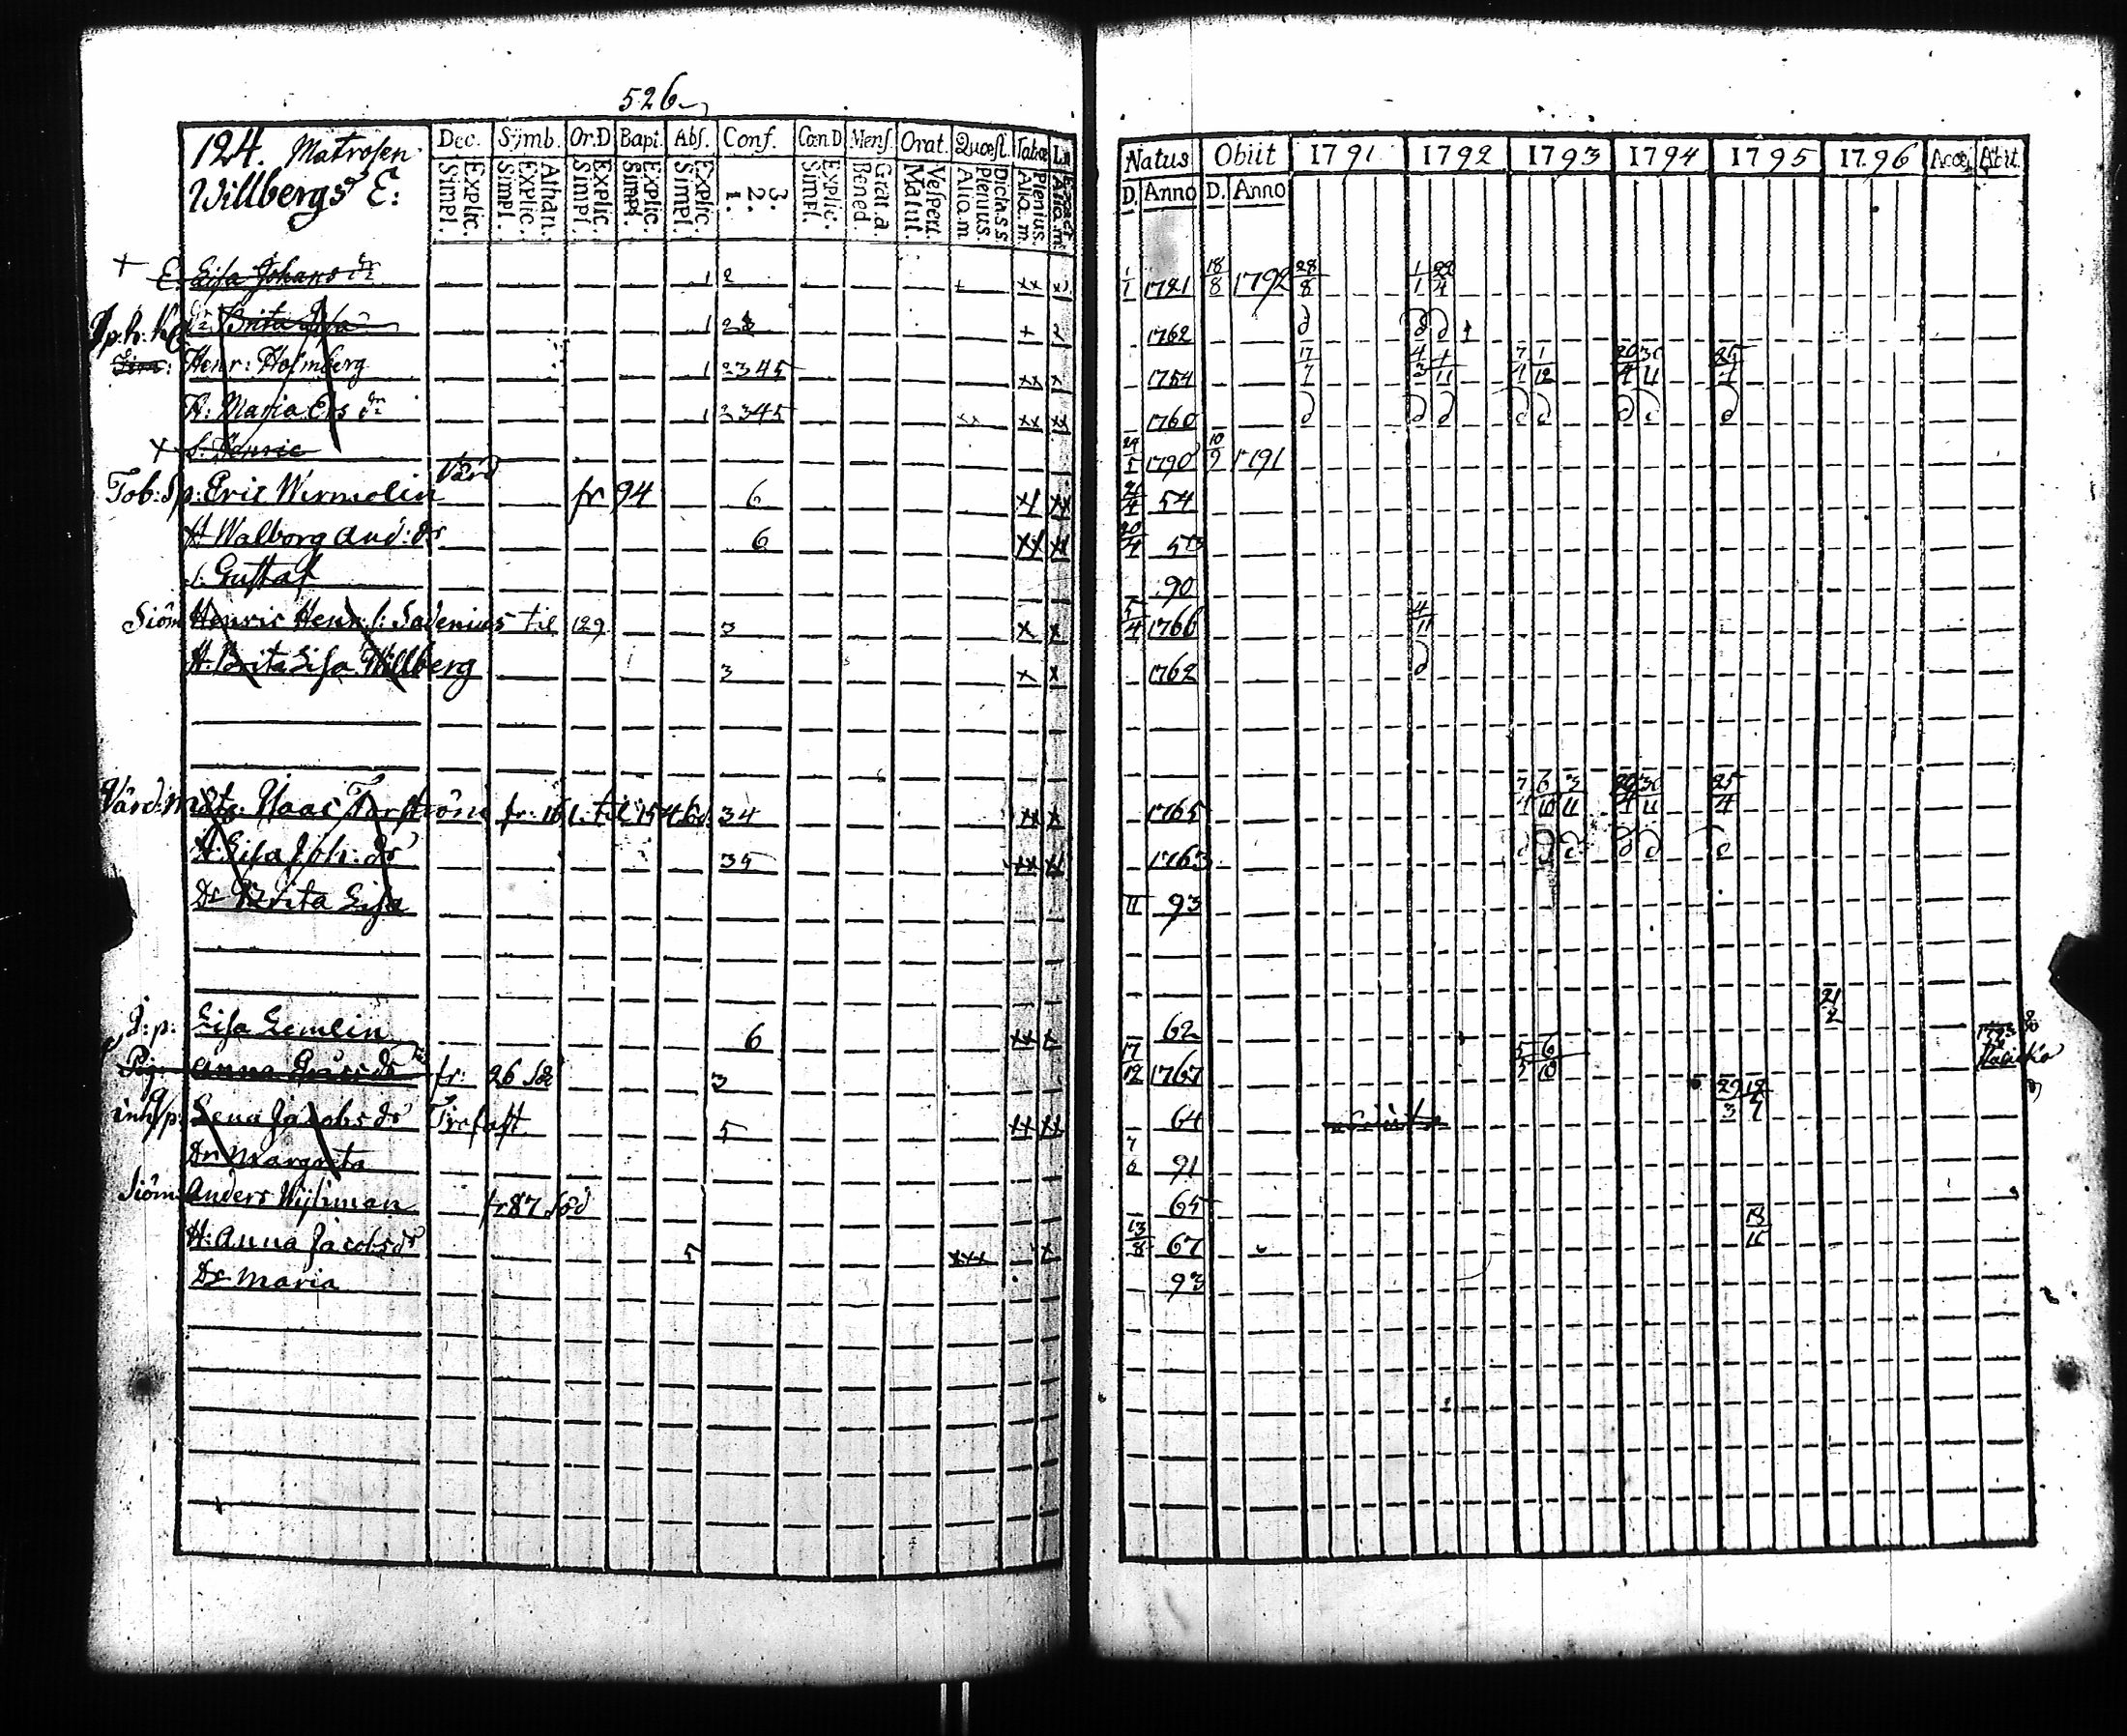 526
124. Matrosen
Willbergs E:
Dec. Symb. Or.D Bapt. Abs. Conf. Cœn.D Mens. Orat. Quæst. Tabœ
Simpl. Explic. Simpl. Explic. Athan. Simpl. Explic. Simpl. Explic. Simpl. Explic. 1. 2. 3. Simpl. Explic. Bened. Grat. a. Matut. Vespert. Alio. m Plenius. Dicta. s.s. Alio. m. Plenius. Alio. m. Exact
Natus Obiit 1791 1792 1793 1794 1795 1796 Acce. Abiit.
D. Anno D. Anno
+ E. Lisa Johans dr 1 2 + xx x 1/1 1721 18/8 1792 28/8 1/1 22/4
Brita Lisa 1 2 3 + 1762
Henr: Holmberg 1 2345 xx x 1754 17/7 4/3 1/11 7/4 1/12 20/4 30/11 25/4
H: Maria Ers dr 1 2345 xx xx xx 1760
+ S. Henric 24/5 1790 10/9 1791
Värd
Tob: Sp: Eric Wermelin fr 94 6 x1 xx 21/4 54
H Walborg And: dr 6 20/4 53
s. Gustaf 90
Siöm Henric Henr. s: Sadenius til 129 3 x x 5/4 1766 4/11
H. Brita Lisa Willberg 3 x x 1762
Värd: Mats. Isaac Torström fr: 161. til 154 Söd. 34 xx x 1765 7/4 6/10 3/11 20/4 30/11 25/4
H. Lisa Joh: dr 35 xx 1763
Dr Brita Lisa 11 93
J: p: Lisa Lemlin 6 xx x 62 21/2
Pig. Anna fr: 26 Söd 3 17/12 1767 5/5 6/10
inh/p: Lena Jacobs dr 5 xx xx 64 29/3 12/7
Dr Margreta 7/6 91
Siöm: Anders Wijkman fr 87 Söd 65
H: Anna Jacobs dr 5 xxx x 13/8 67 18/11
Dr Maria 93